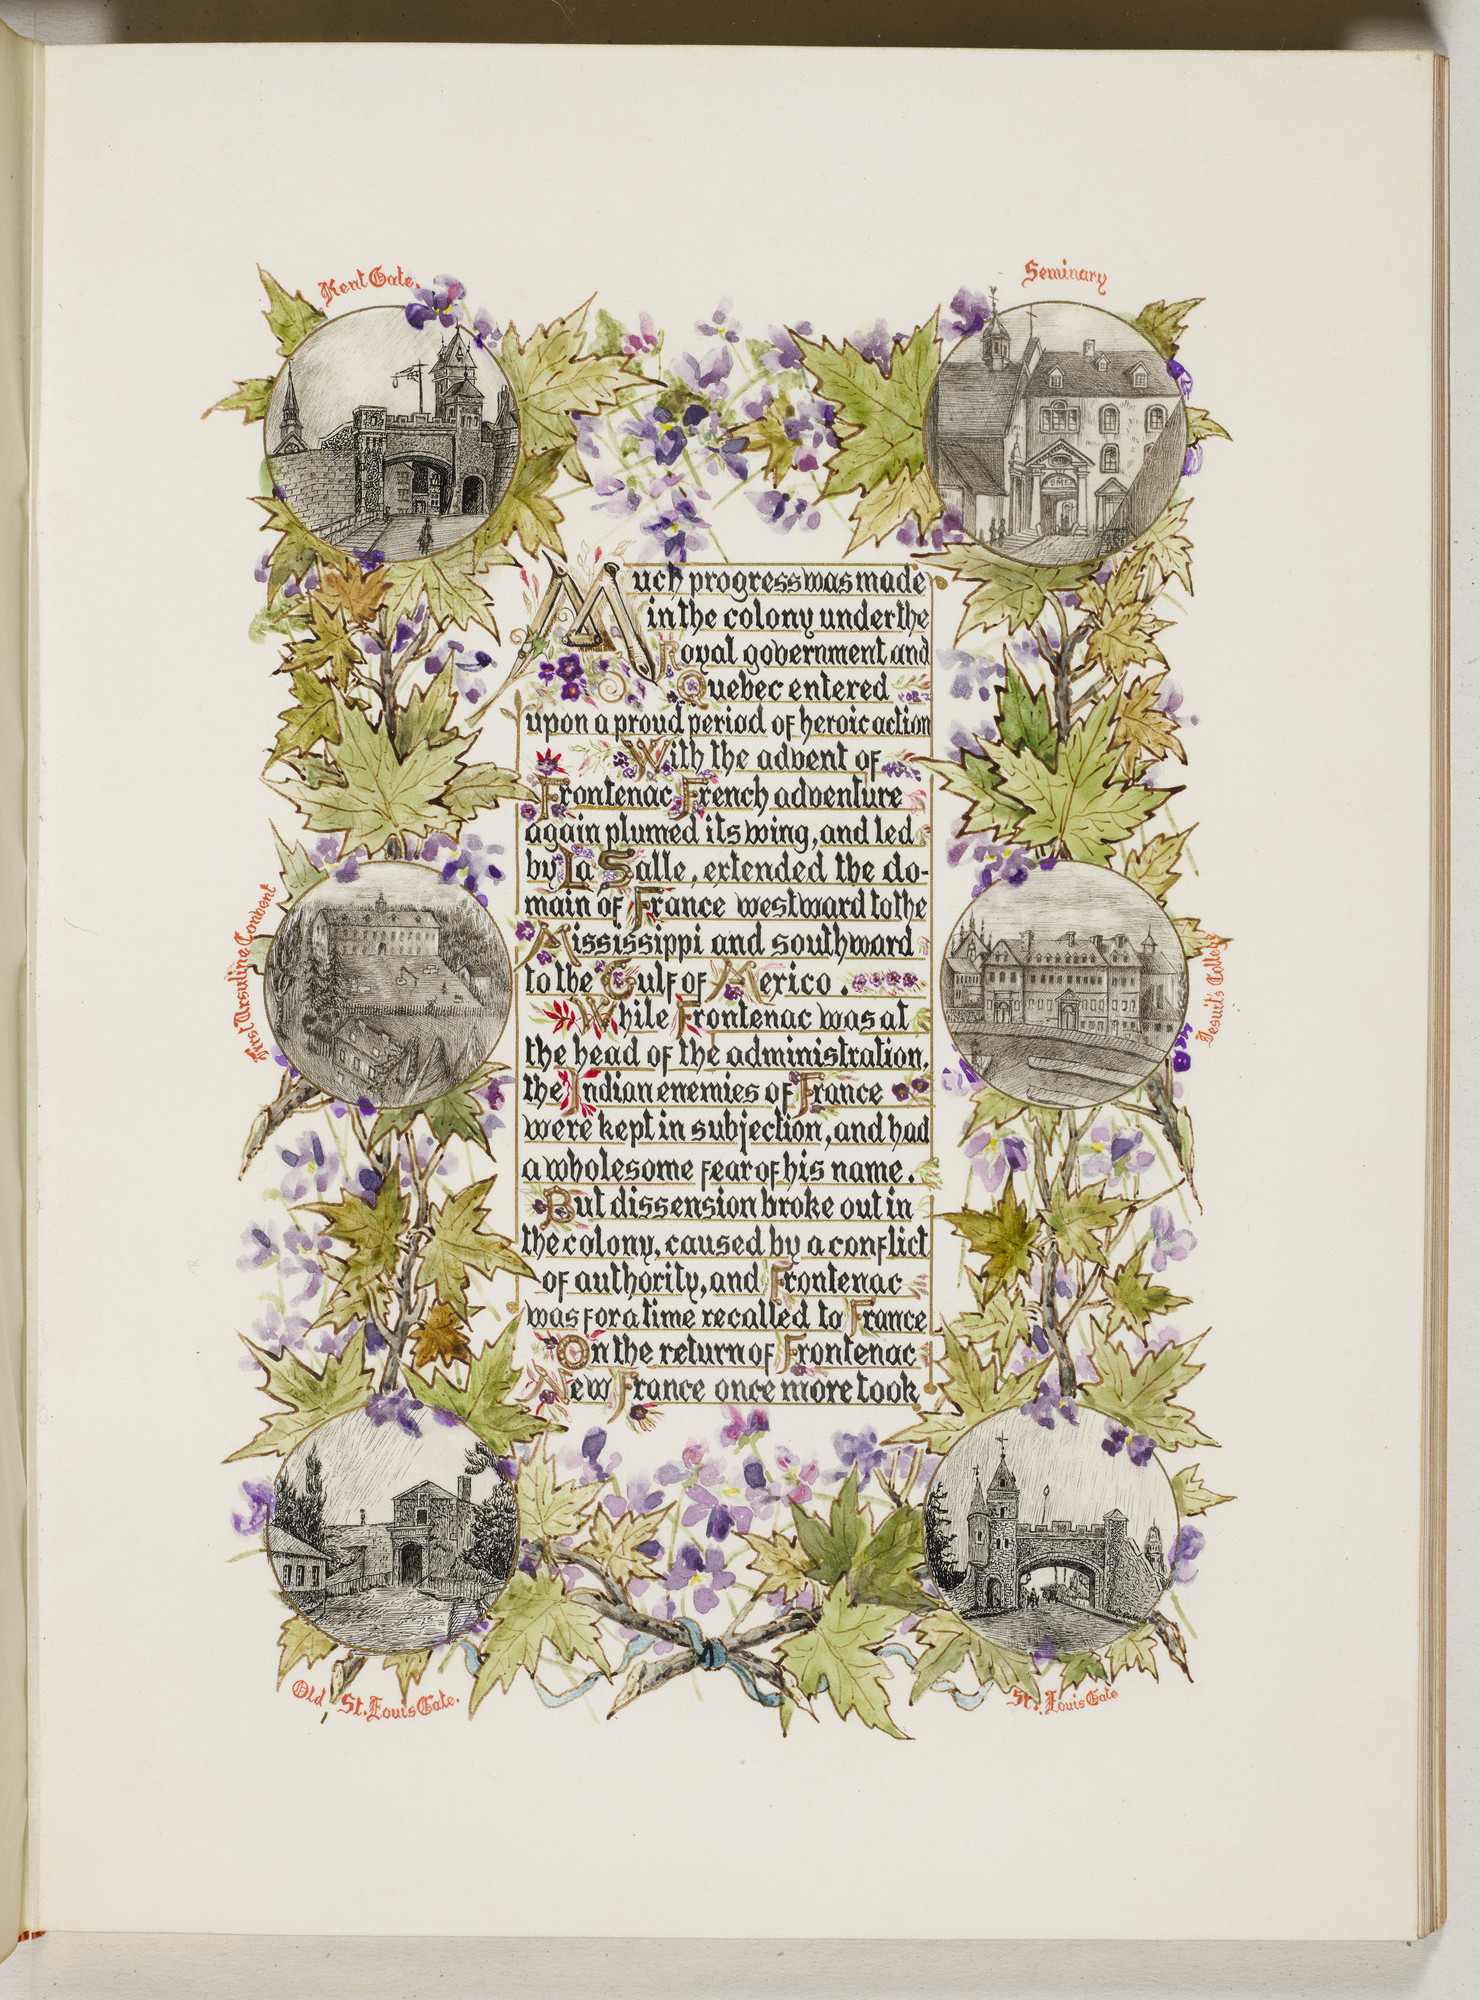 Kent Gate.
Seminary
Much progress was made
in the colony under the
Royal government and
Quebec entered
upon a proud period of heroic action
With the advent of
Frontenac French adventure
again plumed its wing, and led
by La Salle, extended the do-
main of France westward to the
Mississippi and southward
to the Gulf of Mexico.
While Frontenac was at
the head of the administration,
the Indian enemies of France
were kept in subjection, and had
a wholesome fear of his name.
But dissension broke out in
the colony, caused by a conflict
of authority, and Frontenac
was for a time recalled to France
On the return of Frontenac
New France once more took
First Ursuline Convent
Jesuit's College
Old St. Louis Gate.
St. Louis Gate